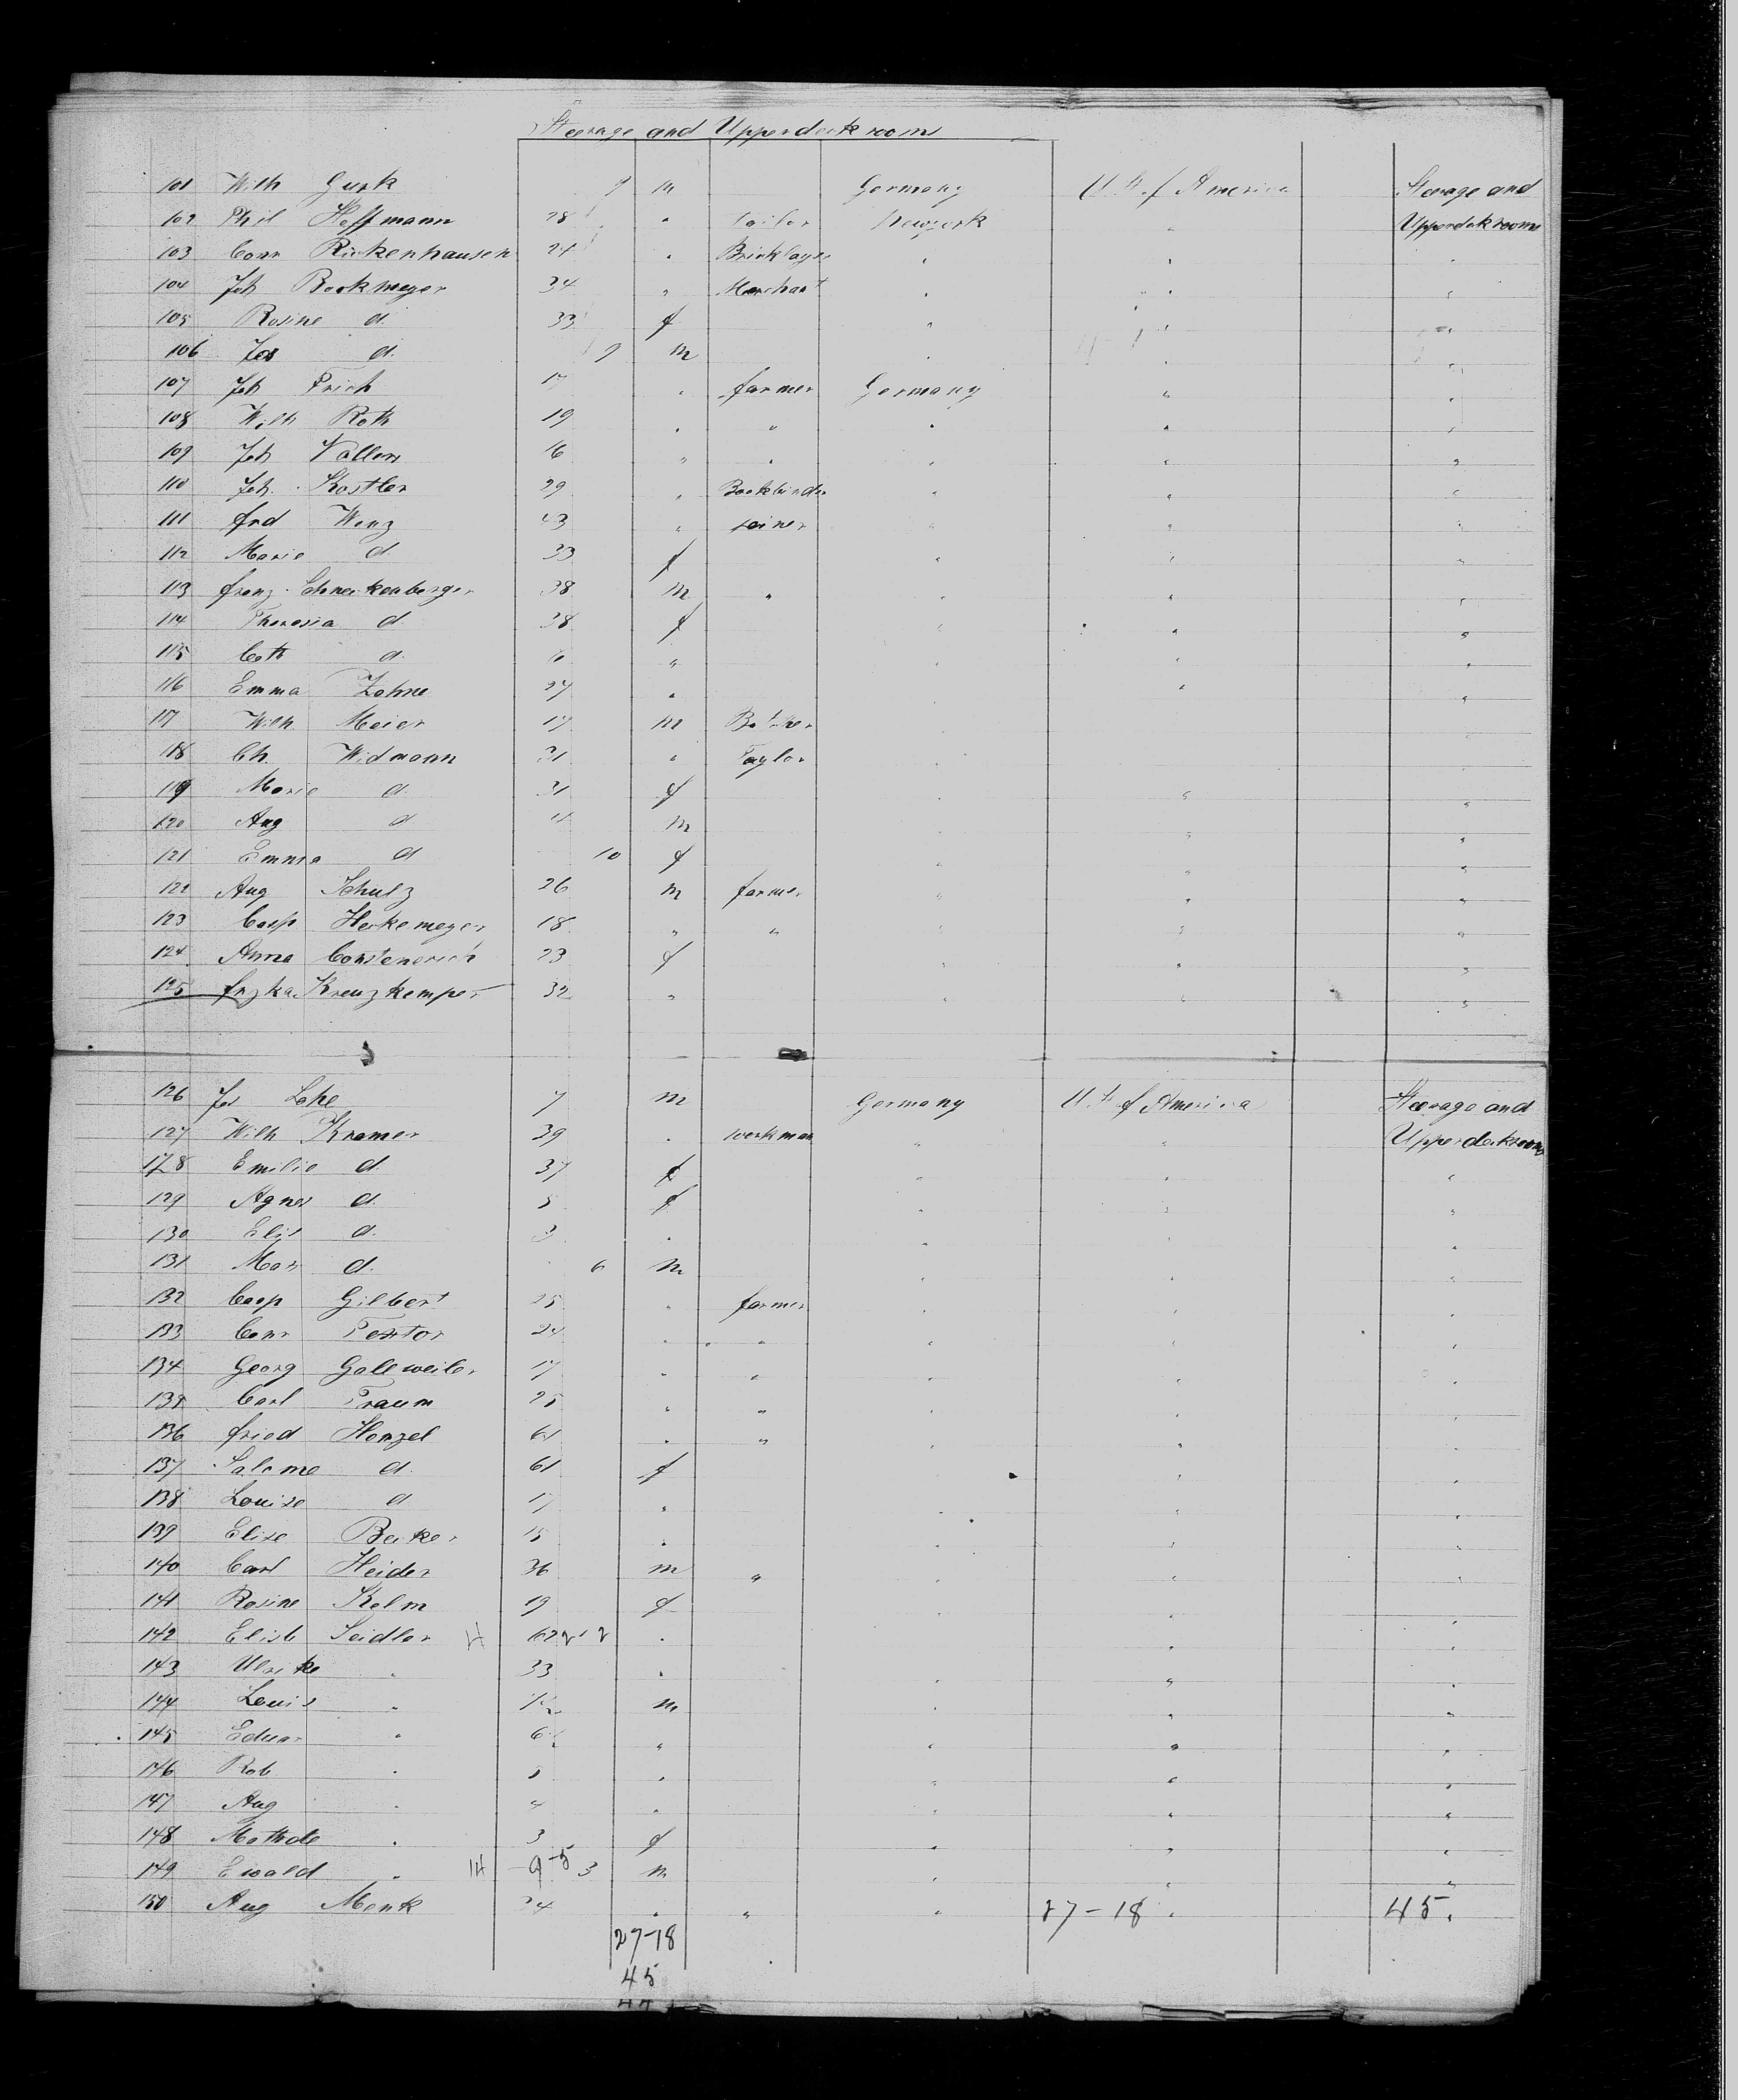 Steerage and Upperdeck rooms
101 Wilh Gurk 9 m Germany U St of America Steerage and
102 Phil Hoffmann 28 " Tailor Newyork " Upperdeck rooms
103 Conr Rickenhausen 24 " Bricklayer " " "
104 Joh Bookmeyer 34 " Merchant " " "
105 Rosine d. 33 f " " "
106 Jos d. 9 m " " "
107 Joh Frich 17 " farmer Germany " "
108 Wilh Roth 19 " " " " "
109 Joh 16 " " " " "
110 Joh. Kostler 29 " Bookbinder " " "
111 frd Wenz 43 " joiner " " "
112 Marie d. 33 f " " "
113 franz Schneckenberger 38 m " " " "
114 Theresia d 38 f " " "
115 Cath d. " " " "
116 Emma Zahne 27 " " " "
117 Wilh Meier 17 m " "
118 Ch. Widmann 31 " Taylor " "
119 Marie d. 31 f " " "
120 Aug d 11 m " " "
121 Emma d 10 f " " "
122 Aug Schulz 26 m farmer " " "
123 Casp Herkemeyer 18 " " " " "
124 Anna 23 f " " "
125 frzka Kreuzkemper 32 " " " "
126 Jos Lohe 7 m Germany U St of America Steerage and
127 Wilh Kramer 39 " workman " " Upperdeckrooms
128 Emilie d. 37 f " " "
129 Agnes d. 5 f " " "
130 Elis d. 3 " " " "
131 Max d. 6 m " " "
132 Casp Gilbert 25 " farmer " " "
133 Conr Textor 24 " " " " "
134 Georg Gallweiler 17 " " " " "
135 Carl Traum 25 " " " " "
136 fried Henzel 61 " " " " "
137 Salome d. 61 f " " "
138 Louise d 17 " " " "
139 Elise Becker 15 " " " "
140 Carl Heider 36 m " " " "
141 Rosine Kelm 19 f " " "
142 Elisb Seidler H 62 " " " "
143 Ulrike " 33 " " " "
144 Louis " m " " "
145 Eduar " 6 " " " "
146 Rob " 5 " " " "
147 Aug " 4 " " " "
148 Mathde " 3 f " " "
149 Ewald " 3 m " " "
150 Aug Menk 24 " " " 27-18 " 45 "
27-18
45